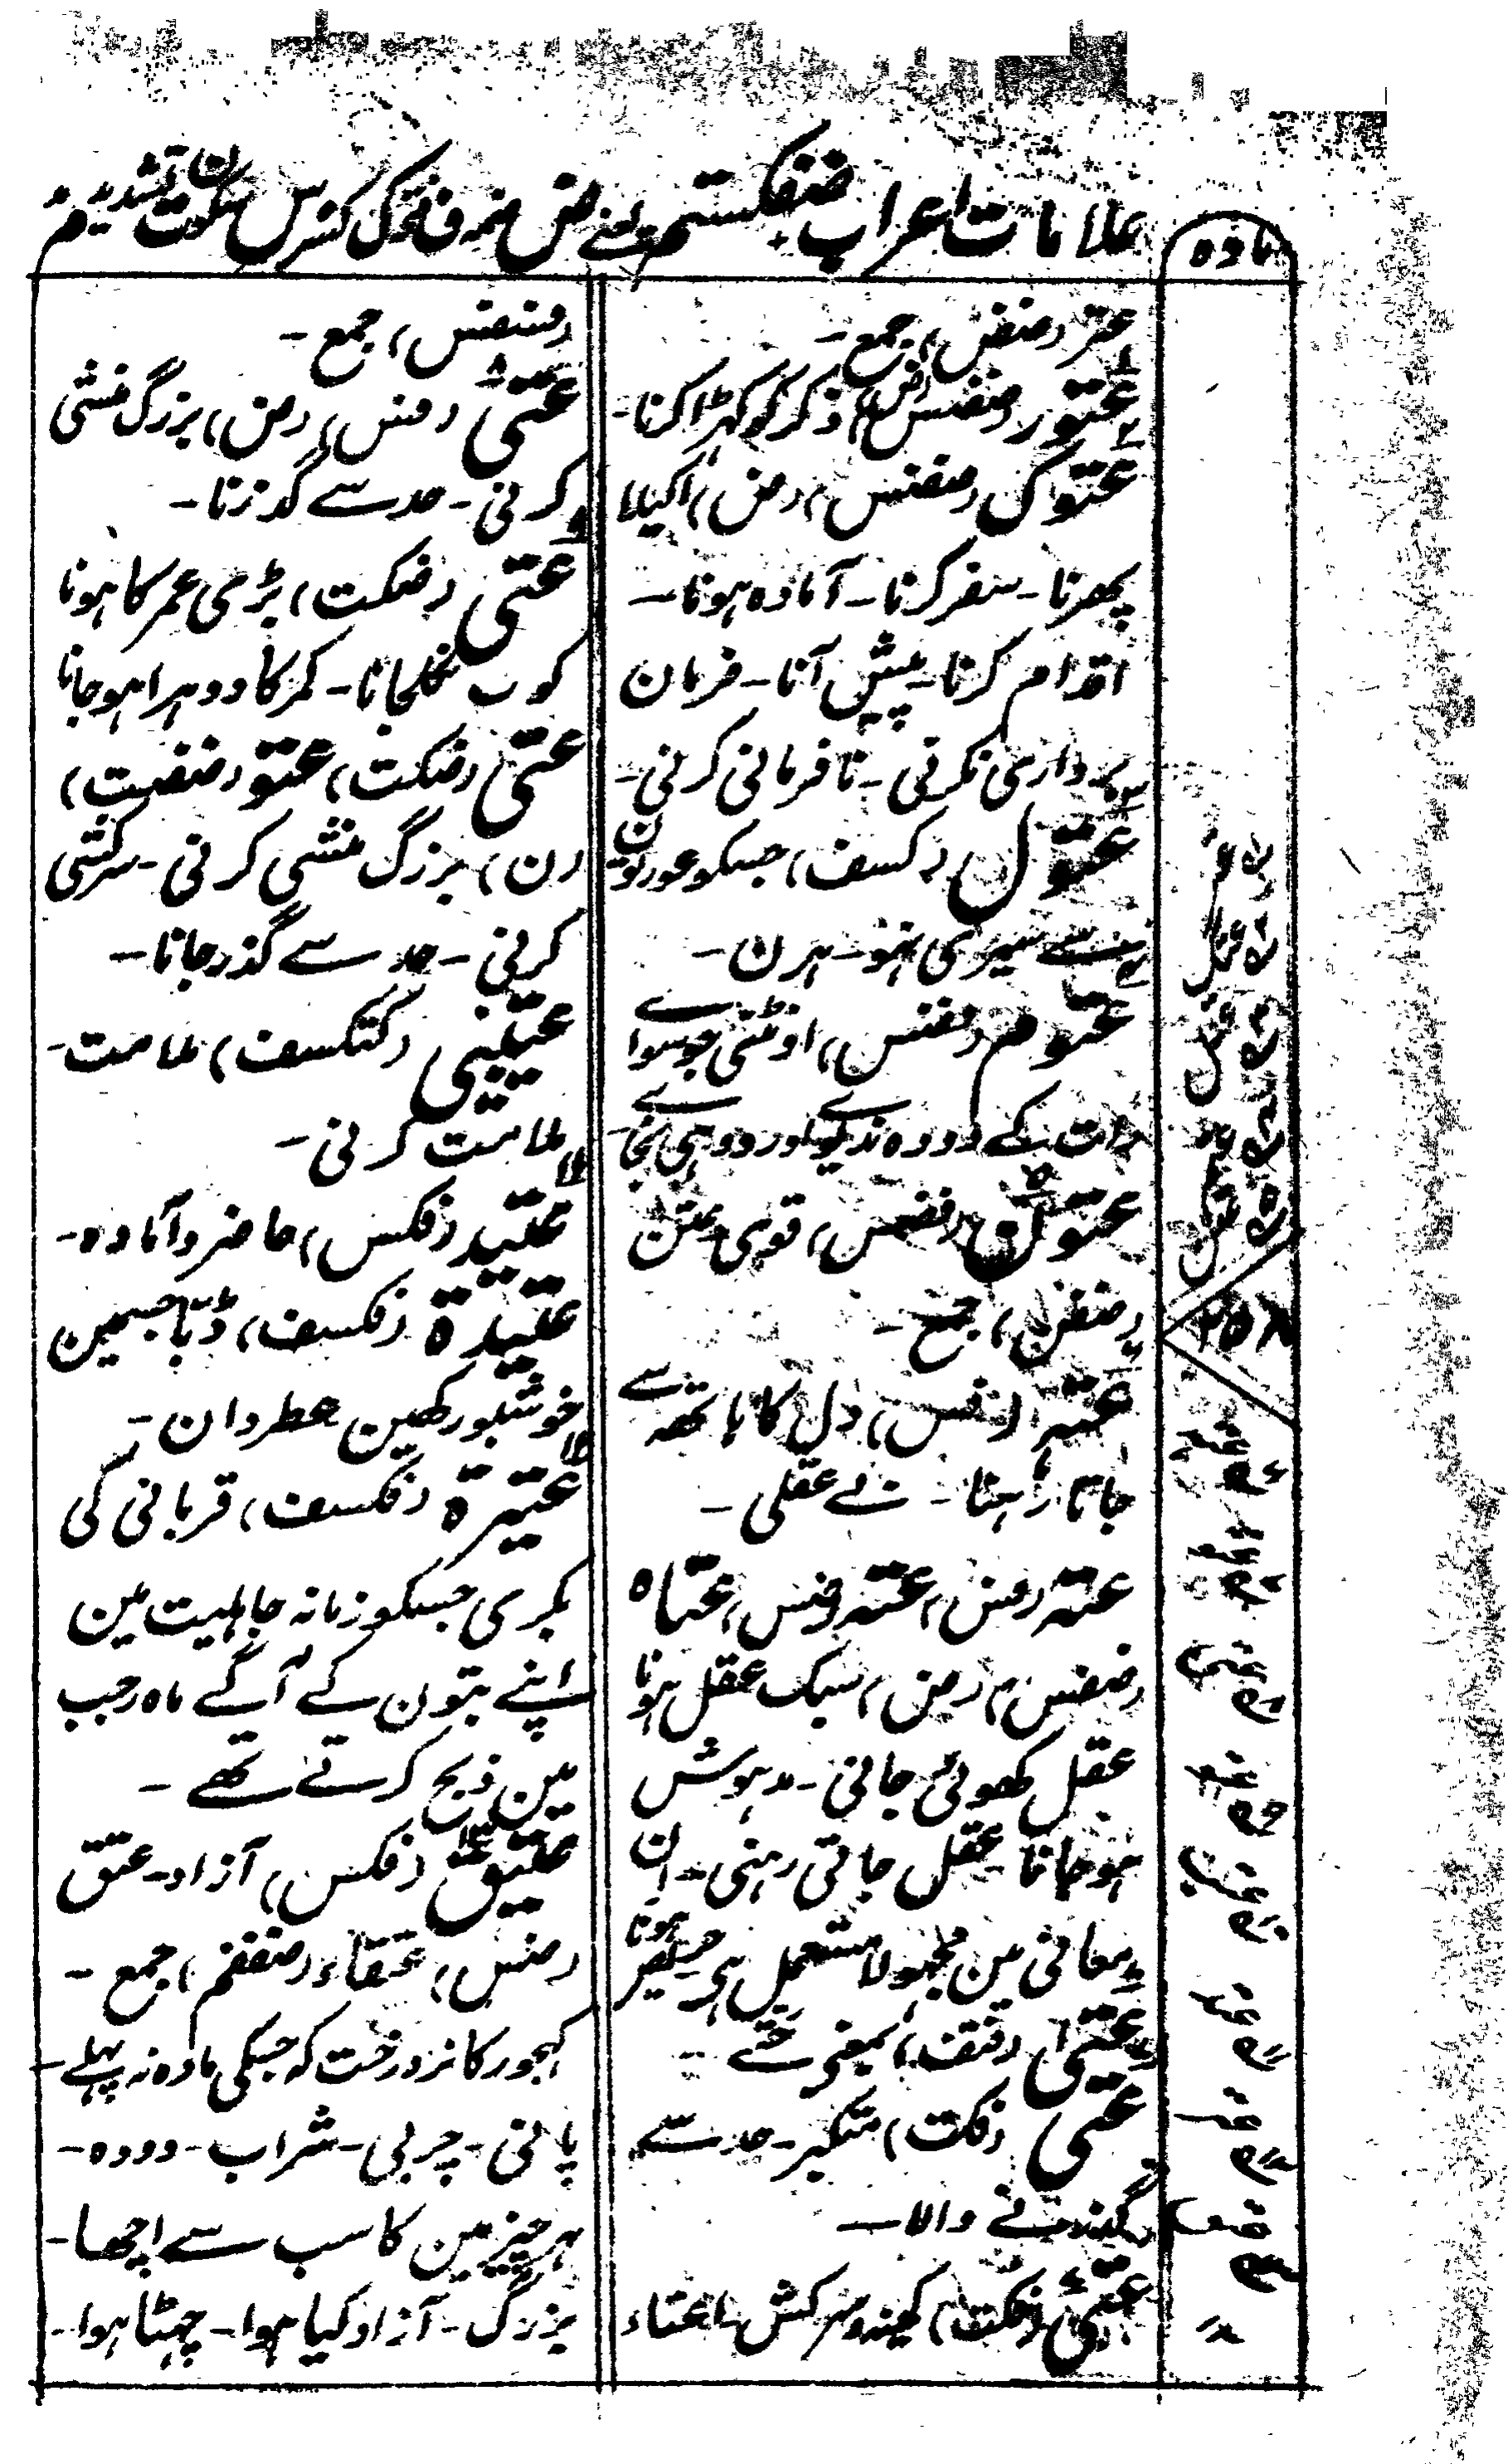 علامات اعراب ضفکستم یعنے ض ضمہ ف فتح ک کسر س سکون ت تشدید م مد
مادہ
عتر (ضفض) جمع -
عتور (ضفس) (ض) ذکر کو کھڑا کرنا -
عتوک (ضفس) (ض) اکیلا
پھرنا - سفر کرنا - آمادہ ہونا -
اقدام کرنا - پیش آنا - فرمان
برداری نکرنی - نافرمانی کرنی -
عتول (کسف) جسکو عورتون
سے سیری نہو - ہرن -
عتوم (فضس) اونٹنی جو سواے
رات کے دودہ ندیوے اور دوہی نجاے
عتون (فضس) قوی عتن
(ضفض) جمع -
عتہ (فس) دل کا ہاتھہ سے
جاتا رہنا - بے عقلی -
عتہ (ض) عتہ (فس) عتاہ
(ضفس) (ض) سبک عقل ہونا
عقل کھوئی جانی - مدہوش
ہوجانا عقل جاتی رہنی - ان
معانی مین مجہولا مستعمل ہی حقیر ہونا
عتی (فتف) بمعنی حتے -
عتی (فکت) متکبر - حد سے
گذرنے والا -
عتی (فکت) کمینہ و سرکش اعتاء
(فسفس) جمع -
عتی (ضس) (ض) بزرگ منشی
کرنی - حد سے گذرنا -
عتی (ضکت) بڑی عمر کا ہونا
کوب نکلجانا - کمر کا دوہرا ہوجانا
عتی (ضکت) عتو (ضضت)
(ن) بزرگ منشی کرنی - سرکشی
کرنی - حد سے گذرجانا -
عتیبی (کتکسف) ملامت -
ملامت کرنی -
عتید (فکس) حاضر و آمادہ -
عتیدة (فکسف) ڈبّا جسمین
خوشبو رکھین عطردان -
عتیرة (فکسف) قربانی کی
بکری جسکو زمانہ جاہلیت مین
اپنے بتون کے آگے ماہ رجب
مین ذبح کرتے تھے -
عتیق (فکس) آزاد - عتق
(ضس) عتقاء (ضففم) جمع -
کہجور کا نر درخت کہ جسکی مادہ نہ پہلے -
پانی - چربی - شراب - دودہ -
ہر چیز مین کا سب سے اچھا -
بزرگ - آزاد کیا ہوا - چھٹا ہوا -